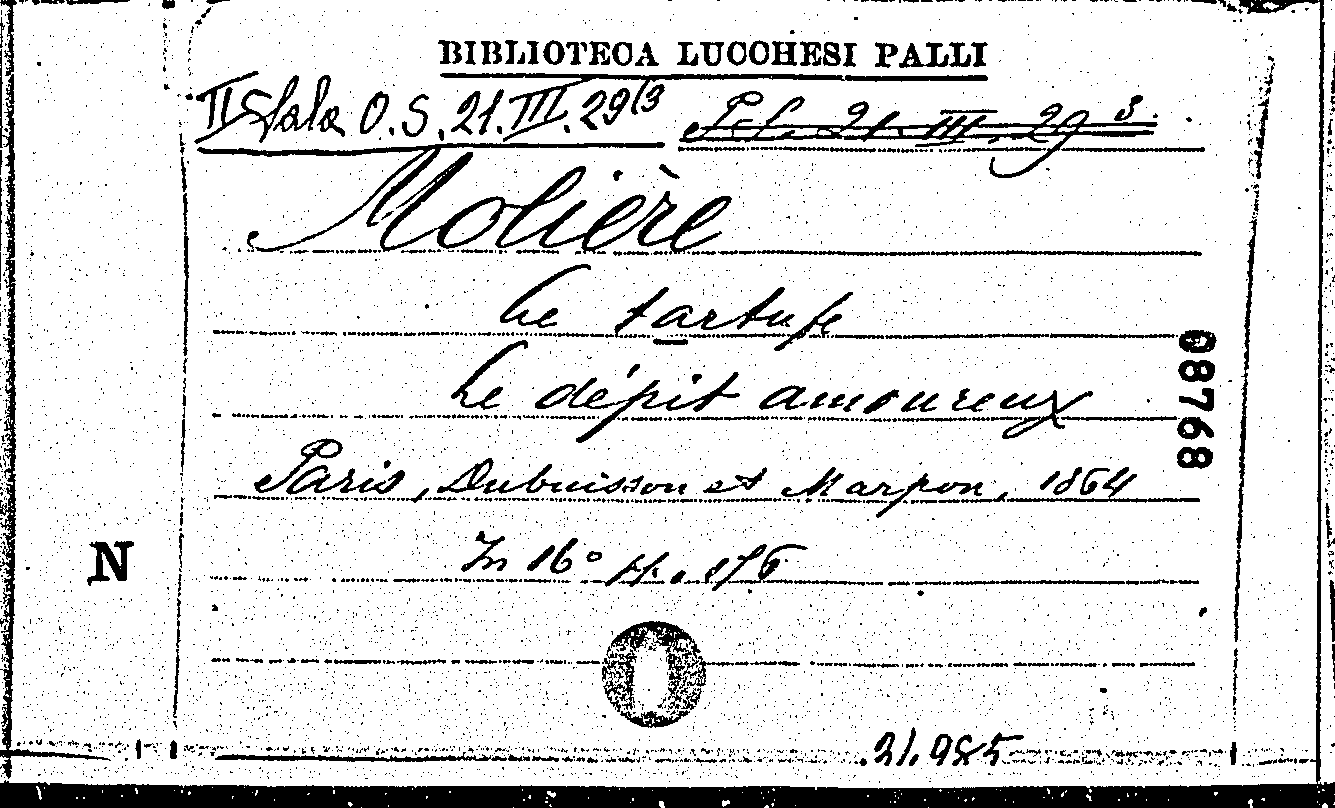 BIBLIOTECA LUCCHESI PALLI
II Sala O.S. 21.III.29(3 P.S. 21. III. 29 3.
Molière
Le tartufe
Le dépit amoureux
Paris, Dubuisson et Marpon, 1864
In 16° pp. 176
08768
N
21.985